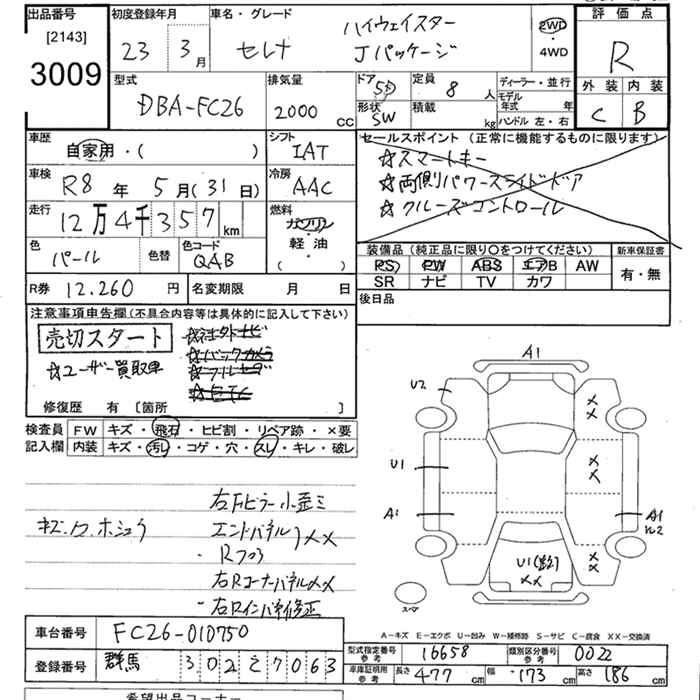 出品番号
[2143]
3009
初度登録年月
23 3月
車名・グレード
セレナ
ハイウェイスター
Jパッケージ
2WD
・
4WD
評価点
R
外装 内装
C B
型式
DBA-FC26
排気量
2000 CC
ドア 5D
形状 SW
定員 8 人
積載 kg
ディーラー・並行
モデル年式 年
ハンドル 左・右
車歴
自家用・( )
シフト
IAT
車検
R8 年 5月(31日)
冷房
AAC
走行
12万4千357 km
燃料
ガソリン
軽油
( ・ )
色
パール
色替
色コード
QAB
R券 12.260 円
名変期限 月 日
セールスポイント(正常に機能するものに限ります)
☆スマートキー
☆両側パワースライドドア
☆クルーズコントロール
装備品(純正品に限り○をつけてください)
新車保証書
RS PW ABS エアB AW
SR ナビ TV カワ
有・無
後日品
注意事項申告欄(不具合内容等は具体的に記入して下さい)
売切スタート
☆ユーザー買取車
☆社外ナビ
☆バックカメラ
☆フルセグ
☆ETC
修復歴 有 [箇所 ]
検査員記入欄
FW キズ・飛石・ヒビ割・リペア跡・×要
内装 キズ・汚レ・コゲ・穴・スレ・キレ・破レ
右Fピラー小歪ミ
エンドパネル
Rフロ
××
右Rコーナーパネル××
右Rインパネ修正
A1
U2
U1
A1
A1
××
××
××
U1
××
スペア
A−キズ E−エクボ U−凹み W−補修跡 S−サビ C−腐食 XX−交換済
車台番号 FC26-010750
登録番号 群馬 302 そ 7063
型式指定番号 参考 16658
類別区分番号 参考 0022
車庫証明用 参考 長さ 477 cm 幅 173 cm 高さ 186 cm
希望出品コーナー